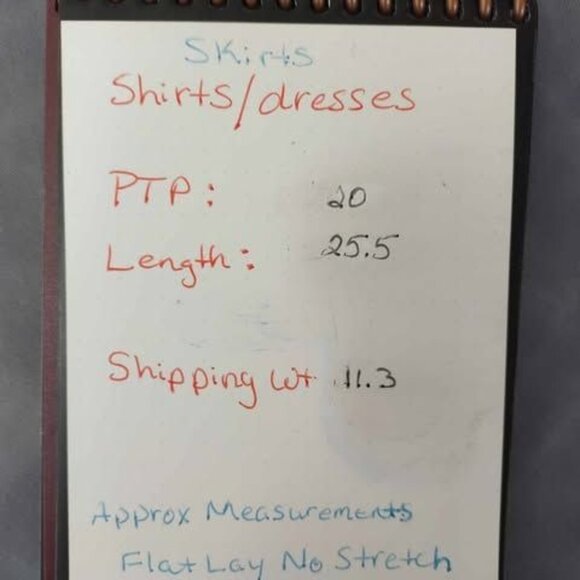 Skirts
Shirts/dresses
PTP: 20
Length: 25.5
Shipping Wt 11.3
Approx Measurements
Flat Lay No Stretch